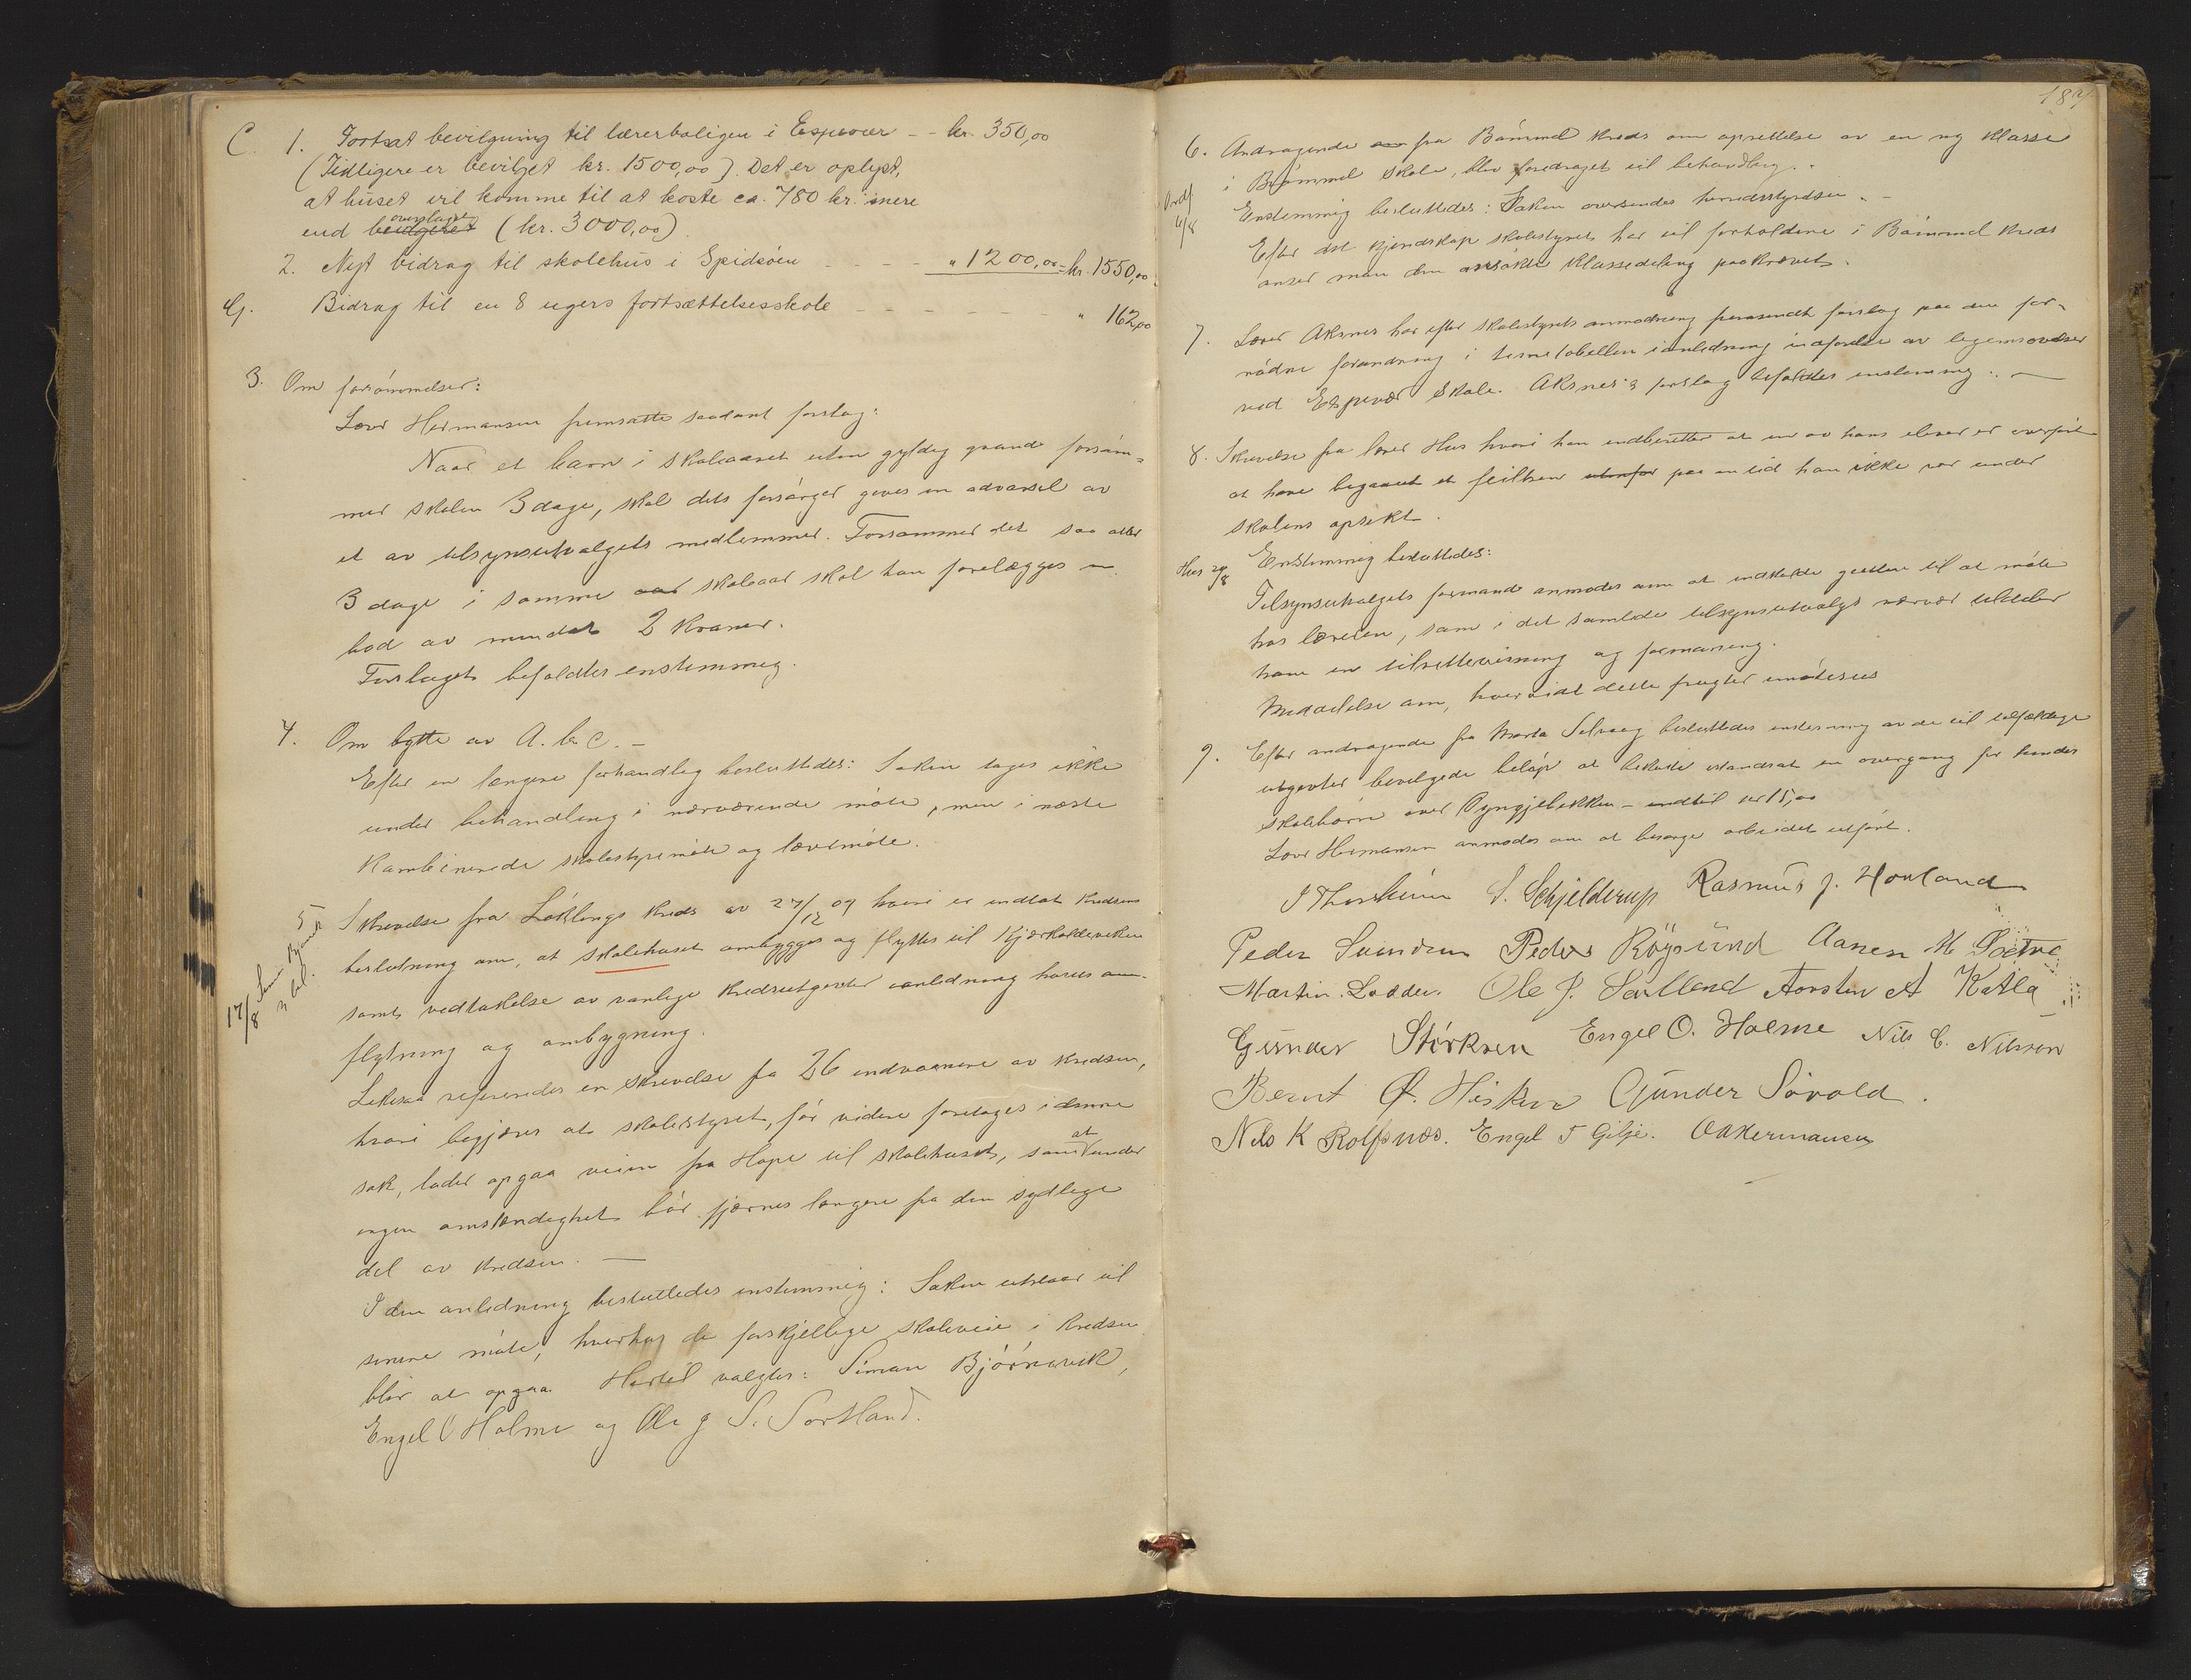 C. 1. Fortsat bevilgning til lærerboligen i Espevær -- kr. 350,00
(Tidligere er bevilget kr. 1500,00). Det er oplyst,
at huset vil komme til at koste ca. 780 kr. mere
end overslaget (kr. 3000,00)
2. Nyt bidrag til skolehus i Spidsöen - - - - " 1200,00 = kr. 1550,00
G. Bidrag til en 8 ugers fortsættelsesskole - - - - - - " 162,00
3. Om forsømmelser:
Lærer Hermansen fremsatte saadant forslag:
Naar et barn i skoleaaret uten gyldig grund forsöm=
mer skolen 3 dage, skal dets forsörger gives en advarsel av
et av tilsynsutvalgets medlemmer. Forsömmer det saa atter
3 dage i samme skoleaar skal han forelægges en
bod av mindst 2 kroner.
Forslaget befaldtes enstemmig.
4. Om bytte av A.b.c. -
Efter en længere forhandling besluttedes: Saken tages ikke
under behandling i nærværende möte, men i næste
kombinerede skolestyremöte og lærermöte.
5 Skrivelse fra Löklings kreds av 27/12 09 hvori er indtat kredsens
beslutning om, at skolehuset ombygges og flyttes til Kjærkoldeviken
samt vedtakelse av vanlige kredsutgivter ianledning husets om-
flytning og ombygning.
17/8
Likesaa refereredes en skrivelse fra 26 indvaanere av kredsen,
hvori begjæres at skolestyret, för videre foretages i denne
sak, lader opgaa veien fra Hope til skolehuset, samt at under
ingen omstændighet bör fjernes længere fra den sydlige
del av kredsen. —
I den anledning besluttedes enstemmig: Saken utstaar til
senere möte, hvorhos de forskjellige skoleveie i kredsen
blir at opgaa. Hertil valgtes: Simon Björnevik,
Engel O Holme og Ole J S. Sortland.
187
6. Andragende fra Bömmel kreds om oprettelse av en ny klasse
i Bömmel skole, blev foredraget til behandling.
Ordf 6/8
Enstemmig besluttedes: Saken oversendes herredsstyrelsen. -
Efter det kjendskap skolestyret har til forholdene i Bömmel kreds
anser man den ansökte klassedeling paakrævet.
7. Lærer Aksnes har efter skolestyrets anmodning fremsendt forslag paa den for-
nödne forandring i timetabellen ianledning indförelse av legemsövelser
ved Espevær skole. Aksnes's forslag befaldtes enstemmig. —
8. Skrivelse fra lærer Hus hvori han indberetter at en av hans elever er overfört
at have begaaet et feiltrin paa en tid han ikke var under
skolens opsikt.
Hus 29/8 Enstemmig besluttedes:
Tilsynsutvalgets formand anmodes om at indkalde gutten til at möte
hos læreren, som i det samlede tilsynsutvalgs nærvær tildeler
ham en tilrettevisning og formaning.
Meddelelse om, hvorvidt dette frugter imötesees
9. Efter andragende fra Marta Selvaag besluttedes enstemmig av de til tilfældige
utgivter bevilgede belöp at bekoste istandsat en overgang for hendes
skolebörn over - indtil kr 15,00
Lærer Hermansen anmodes om at besörge arbeidet utfört.
S. Schjelderup Rasmus J. Hovland
Peder Røysund Aanen M Sætre
Martin Lodden. Ole J. Sortland Torsten A Katla
Gunder Störksen Engel O. Holme Nils C. Nilssen
Bernt Ø. Hisken Gunder Sörvold.
Nils K Rolfsnæs. Engel T Gilje. O Akermansen